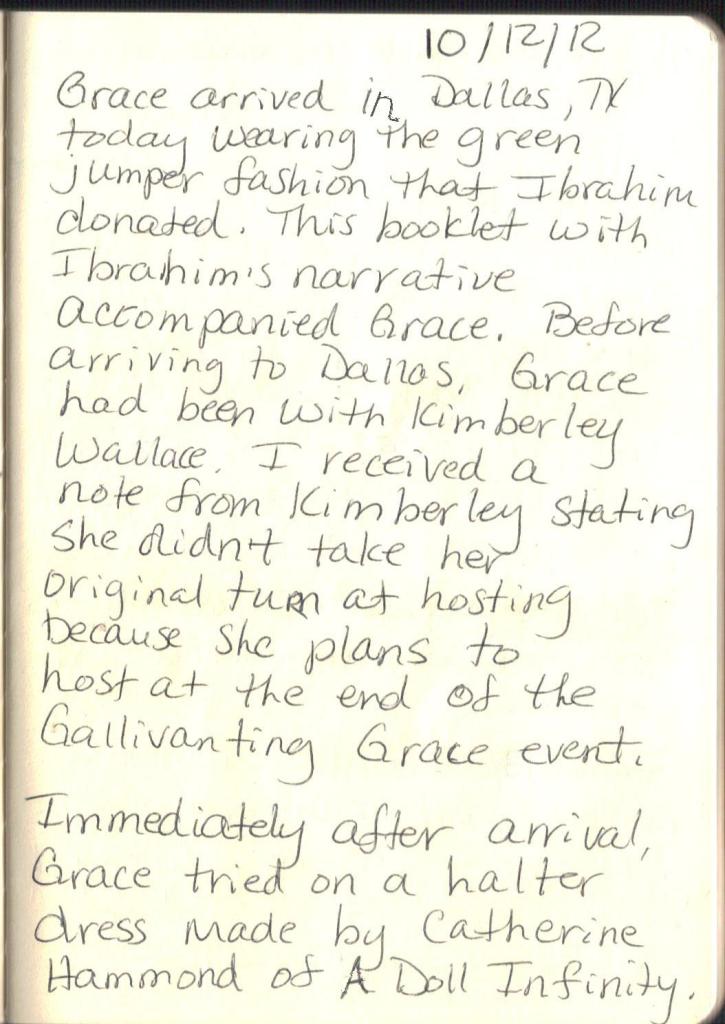 10/12/12
Grace arrived in Dallas, TX
today wearing the green
jumper fashion that Ibrahim
donated. This booklet with
Ibrahim's narrative
accompanied Grace. Before
arriving to Dallas, Grace
had been with Kimberley
Wallace. I received a
note from Kimberley stating
she didn't take her
original turn at hosting
because she plans to
host at the end of the
Gallivanting Grace event.
Immediately after arrival,
Grace tried on a halter
dress made by Catherine
Hammond of A Doll Infinity.